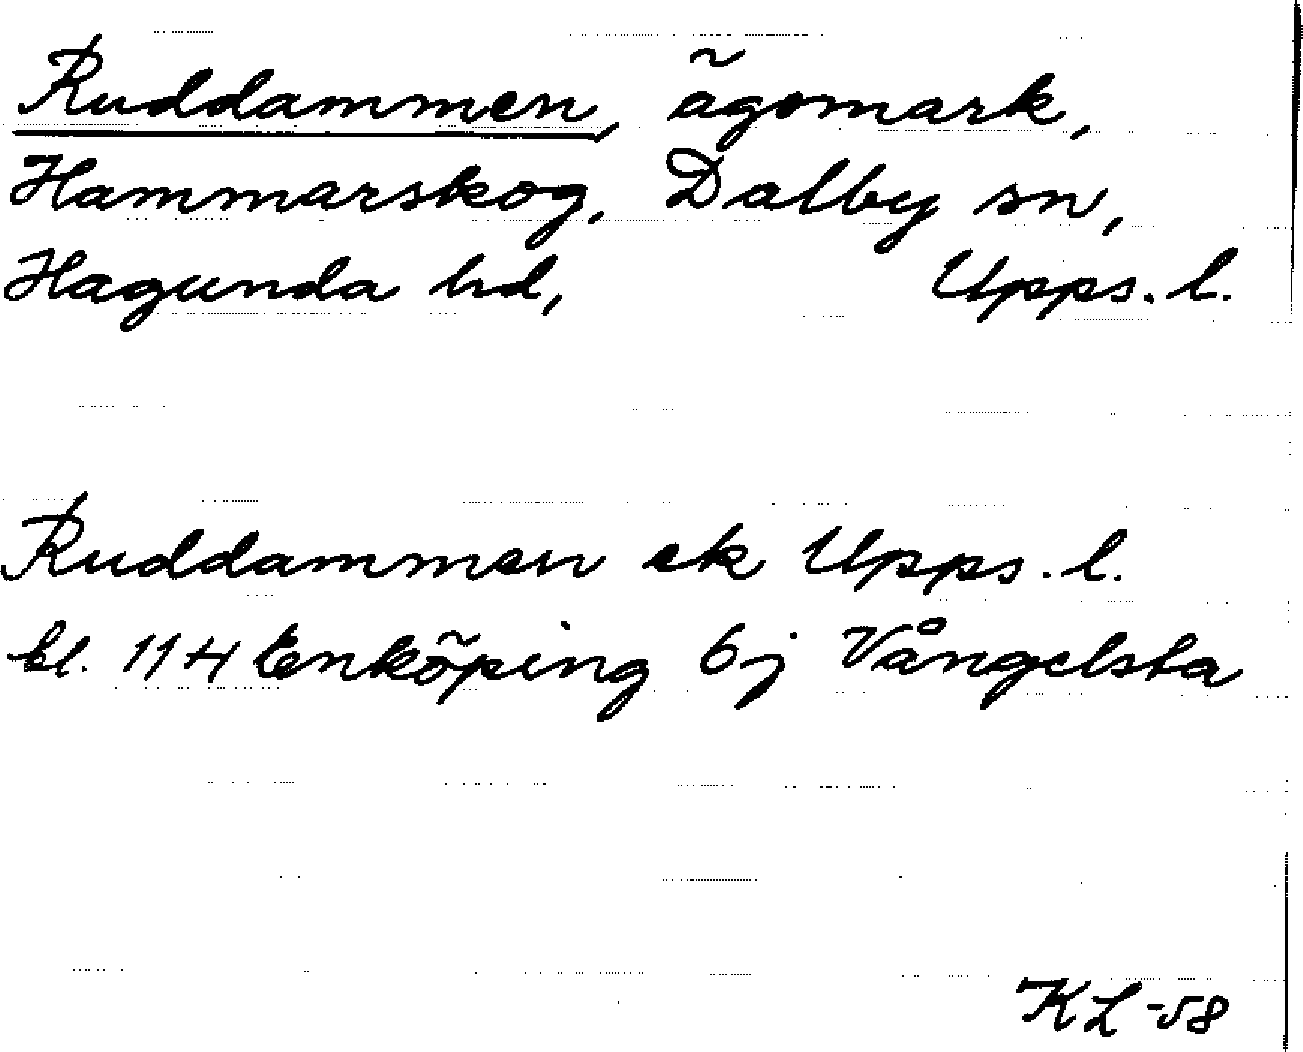 Ruddammen, ägomark,
Hammarskog, Dalby sn,
Hagunda hd, Upps. l.
Ruddammen ek Upps. l.
bl. 11 H Enköping 6j Vångelsta
KL -58